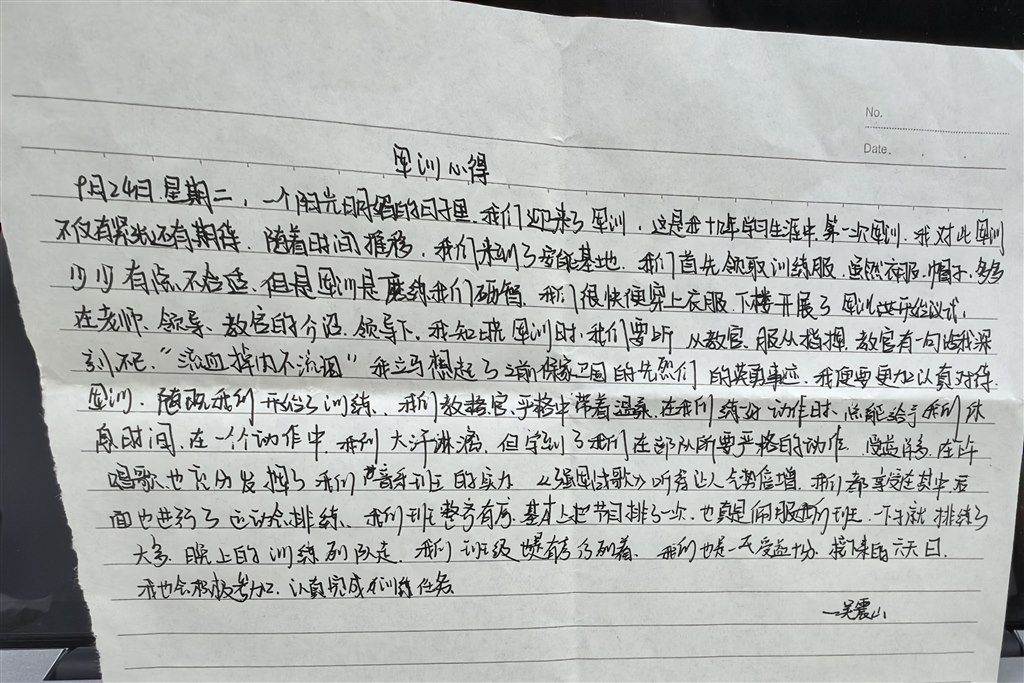 No.
Date.
军训心得
9月24日,星期二,一个阳光明媚的日子里,我们迎来了军训,这是我十几年学习生涯中,第一次军训,我对此军训
不仅有紧张还有期待。随着时间推移,我们来到了安能基地,我们首先领取训练服,虽然衣服、帽子,多多
少少有点不合适,但是军训是磨练我们,我们很快便穿上衣服,下楼开展了军训开始仪式,
在老师、领导、教官的介绍、领导下,我知晓军训时,我们要听从教官、服从指挥,教官有一句话我深
刻不已,“流血掉肉不流泪”我立马想起了之前保家卫国的先烈们的英勇事迹,我便要更加认真对待
军训,随既我们开始了训练,我们教官,严格中带着温柔,在我们练好动作时,总能给予我们休
息时间,在一个动作中,我们大汗淋漓,但学到了我们在部队所要严格的动作,受益许多,在
唱歌也充分发挥了我们音乐班的实力《强军战歌》听着让人气势倍增,我们都享受在其中,
面也进行了运动会排练、我们班整齐有序,基本上把节目排了一次,也真是佩服班,一下子就排练了
大多,晚上的训练列队走,我们班级也是有序,我们也是一天受益,接下来的六天日,
我也会积极参加,认真完成训练任务
—吴震山